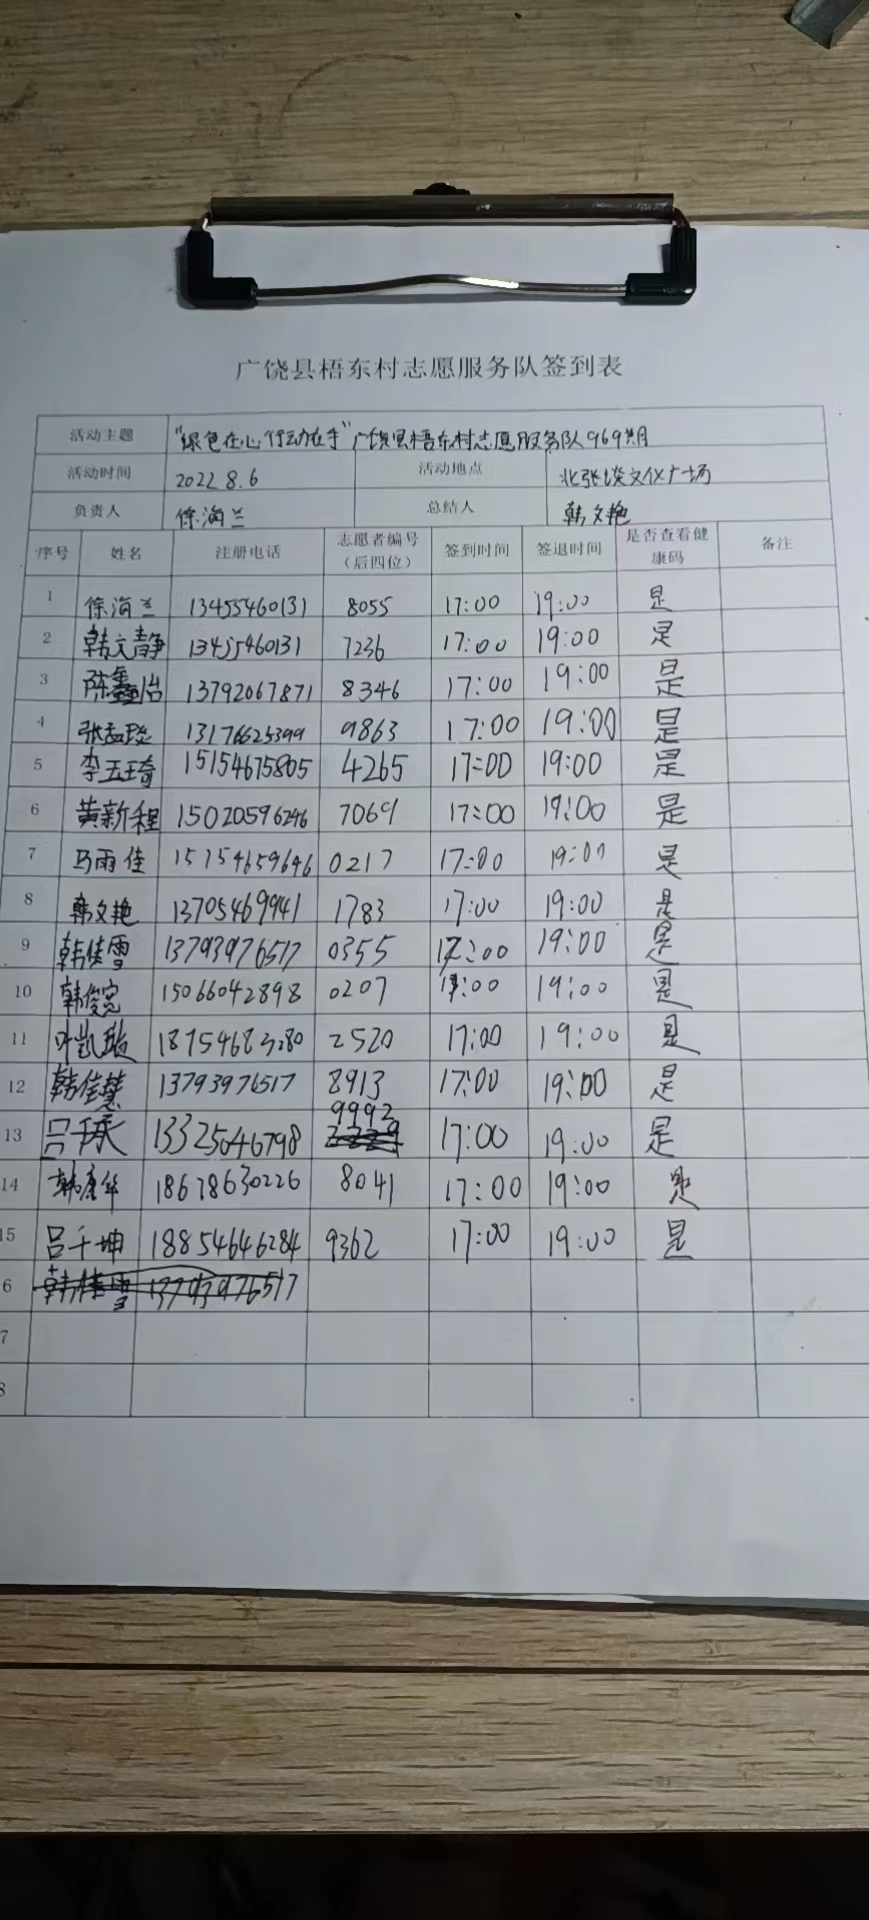 广饶县梧东村志愿服务队签到表
活动主题 "绿色在心 行动在手"广饶县梧东村志愿服务队969期
活动时间 2022 8.6 活动地点 北张淡文化广场
负责人 徐海兰 总结人 韩文艳
序号 姓名 注册电话 志愿者编号（后四位） 签到时间 签退时间 是否查看健康码 备注
1 徐海兰 13455460131 8055 17:00 19:00 是
2 韩文静 13455460131 7236 17:00 19:00 是
3 陈鑫怡 13792067871 8346 17:00 19:00 是
4 张孟琰 13176625399 9863 17:00 19:00 是
5 李玉琦 15154675805 4265 17:00 19:00 是
6 黄新程 15020596246 7069 17:00 19:00 是
7 马雨佳 15154659646 0217 17:00 19:00 是
8 韩文艳 13705469941 1783 17:00 19:00 是
9 韩佳雪 13793976517 0355 17:00 19:00 是
10 韩俊宽 15066042898 0207 17:00 19:00 是
11 叶凯璇 18754683280 2520 17:00 19:00 是
12 韩佳慧 13793976517 8913 17:00 19:00 是
13 吕承 13325046798 9992 17:00 19:00 是
14 韩康华 18678630226 8041 17:00 19:00 是
15 吕千坤 18854646284 9362 17:00 19:00 是
6 韩佳雪 13793976517
7
8